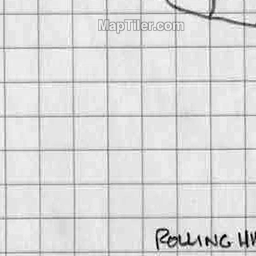 MapTiler.com
ROLLING HI